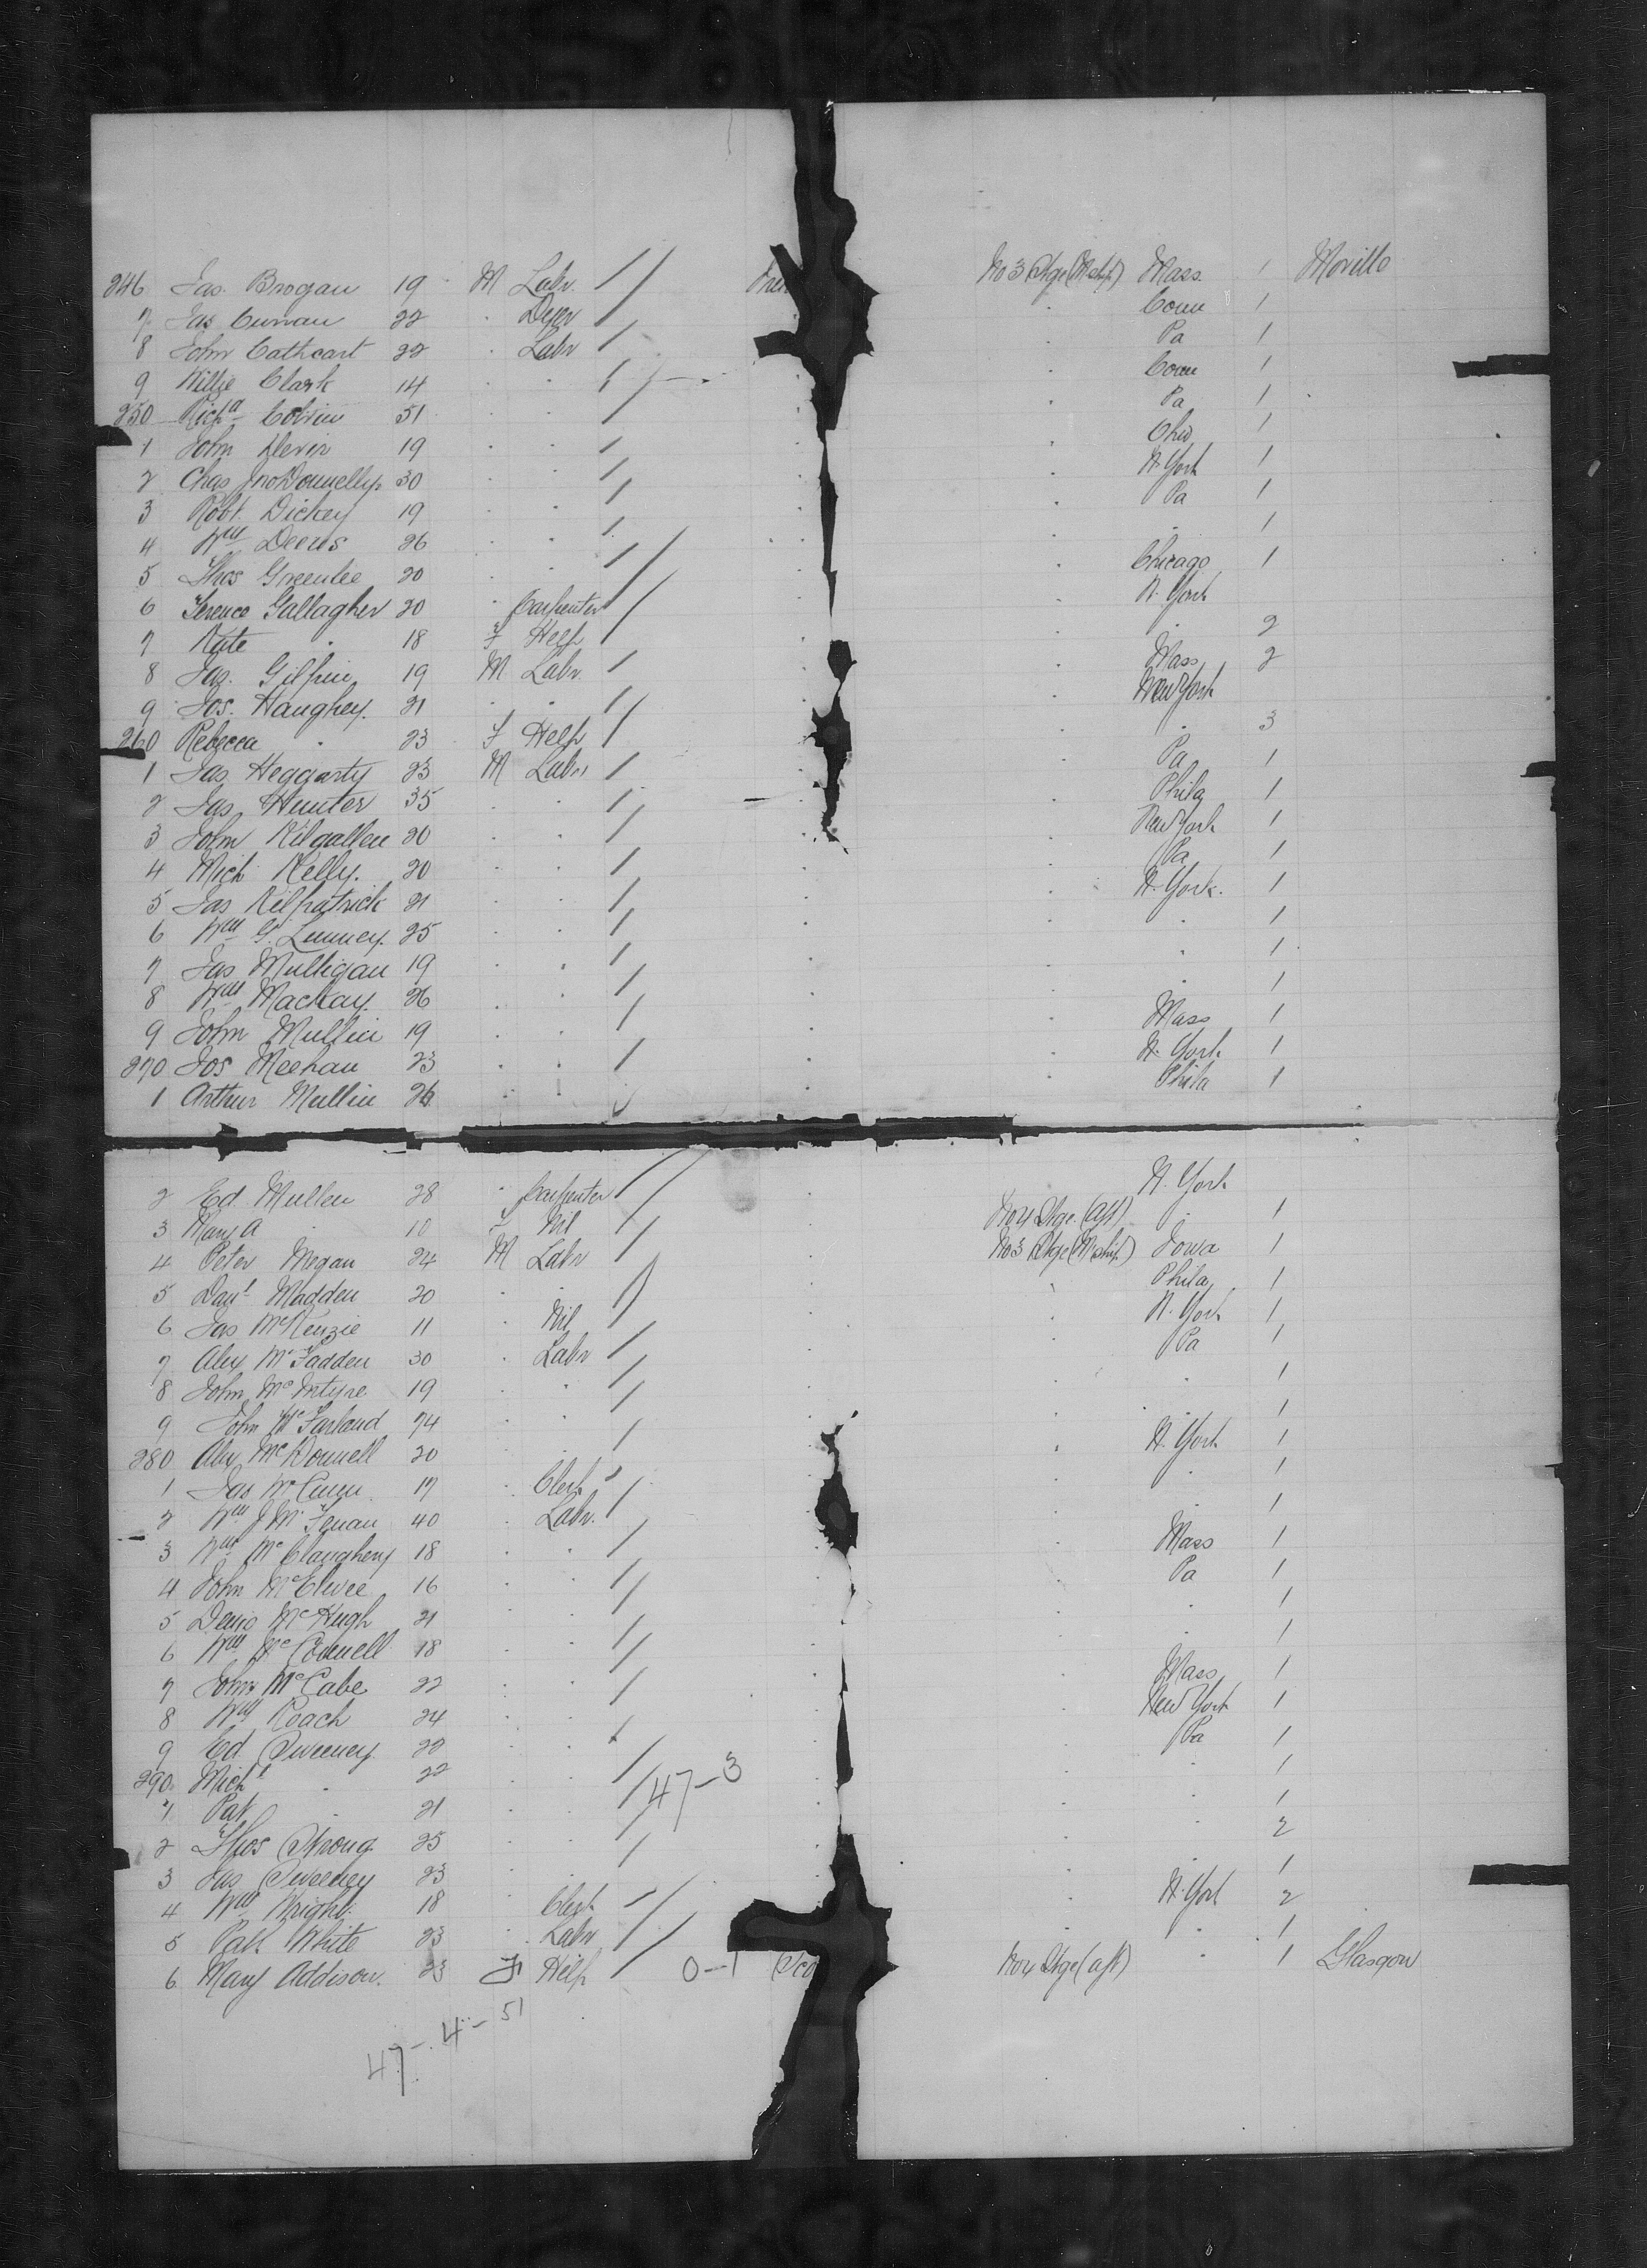 246 Jas. Brogan 19 M Labr. No 3 Stge (Mship) Mass 1 Moville
7 Jas Curran 22 " Dyer " Conn 1
8 John Cathcart 22 " Labr " Pa 1
9 Willie Clark 14 " " " Conn 1
250 Richd 51 " " " Pa 1
1 John Devin 19 " " " Ohio 1
2 Chas Jno Donnelly 30 " " " N. York 1
3 Robt. Dickey 19 " " " Pa 1
4 Wm 26 " " " " 1
5 Thos Greenlee 20 " " " Chicago 1
6 Terence Gallagher 20 " Carpenter " N. York
7 Kate " 18 F Help " " 2
8 Jas. Gilfin 19 M Labr. " Mass 2
9 Jos. Haughey. 21 " " " New York
260 Rebecca " 23 F Help " " 3
1 Jas Heggarty 23 M Labr " Pa 1
2 Jas Hunter 35 " " " Phila 1
3 John Kilgallen 20 " " " New York 1
4 Mich Kelly. 20 " " " Pa 1
5 Jas Kilpatrick 21 " " " N. York. 1
6 Wm G. Lunney. 25 " " " " 1
7 Jas Mulligan 19 " " " " 1
8 Wm Mackay. 26 " " " " 1
9 John Mullin 19 " " " Mass 1
270 Jos Meehan 23 " " " N. York 1
1 Arthur Mullin 26 " " " Phila 1
2 Ed. Mullen 28 " Carpenter N. York
3 Mary A " 10 F Nil No 4 Stge. (aft) " 1
4 Peter Megan 24 M Labr No 3 Stge (Mship) Iowa 1
5 Danl Madden 20 " " " Phila 1
6 Jas McKenzie 11 " Nil " N. York 1
7 Alex McFadden 30 " Labr " Pa 1
8 John McIntyre 19 " " " " 1
9 John McFarland 24 " " " " 1
280 Alex McDonnell 20 " " " N. York 1
1 Jas McCann 17 " Clerk " " 1
2 Wm J McFenan 40 " Labr. " " 1
3 Wm McClaugheny 18 " " " Mass 1
4 John McElwee 16 " " " Pa 1
5 Denis McHugh 21 " " " " 1
6 Wm McConnell 18 " " " " 1
7 John McCabe 22 " " " Mass 1
8 Wm Roach 24 " " " New York 1
9 Ed Sweeney 20 " " " Pa 1
290 Michl " 22 " " 47-3 " " 1
1 Pat " 21 " " " " 1
2 Thos Strong 25 " " " " 2
3 Jas Sweeney 23 " " " " 1
4 Wm Wright. 18 " Clerk " N. York 2
5 Patk White 23 " Labr " " 1
6 Mary Addison. 23 F Help 0-1 No 4 Stge (aft) " 1 Glasgow
47-4-51